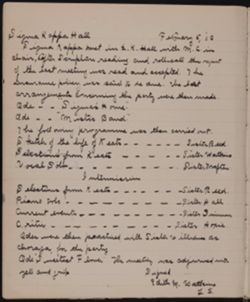 Sigma Kappa Hall February 5, 10
Sigma Kappa met in S. K. Hall with M. C. in
chair. After Scripture reading and roll call the report
of the last meeting was read and accepted. The
Insurance given was said to be due. The last
arrangements concerning the party were then made.
Ode - - Sigma's Home.
Ode - - "Mister Band"
The following programme was then carried out
Sketch of the life of Keats - - - Sister Reed.
Selections from Keats - - - - Sister Watkins
Vocal Solo - - - - Sister
Intermission
Selections from Keats - - - Sister Reed.
Piano Solo - - - - Sister Hall
Current events - - - - Sister
Critic - - - - Sister Howe
Odes were then practised with Sister Williams as
for the party
Ode "Sweetest Flower". The meeting was adjourned with
yell and grip
Signed
Edith M. Watkins